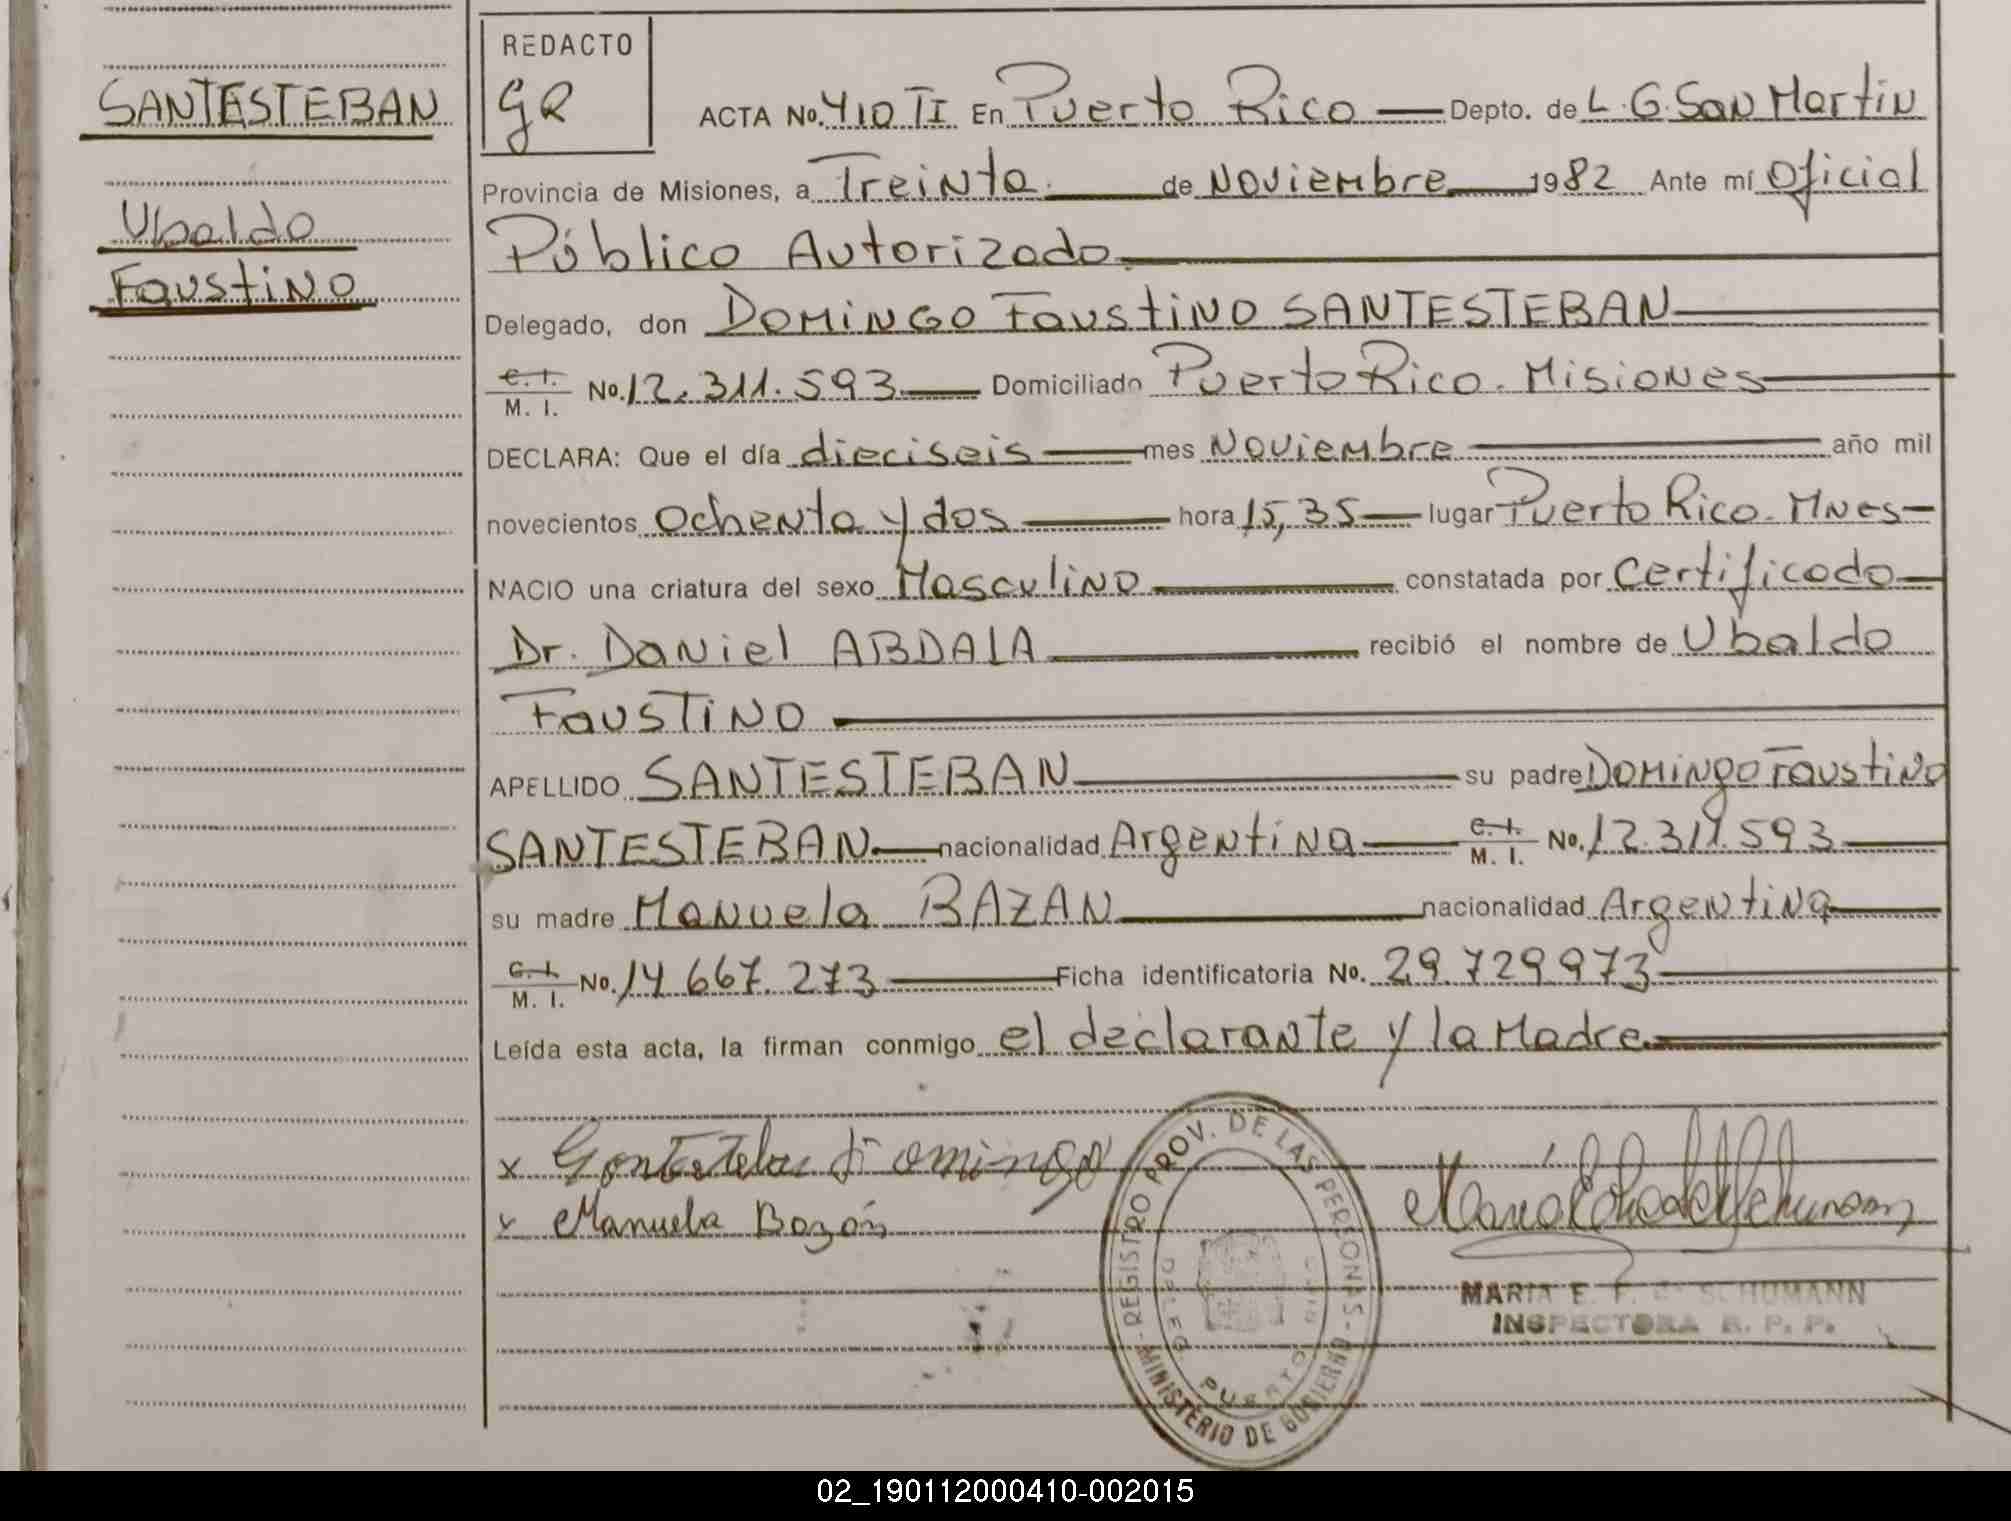 SANTESTEBAN
Ubaldo
Faustino
REDACTO
GR
ACTA No. 410 TI En Puerto Rico Depto. de L. G. San Martin
Provincia de Misiones, a Treinta de Noviembre 1982 Ante mí Oficial
Público Autorizado
Delegado, don DOMINGO Faustino SANTESTEBAN
C. I. M. I. No. 12.311.593 Domiciliado Puerto Rico. Misiones
DECLARA: Que el día dieciseis mes Noviembre año mil
novecientos ochenta y dos hora 15,35 lugar Puerto Rico. Mnes
NACIO una criatura del sexo Masculino constatada por Certificado
Dr. Daniel ABDALA recibió el nombre de Ubaldo
Faustino
APELLIDO SANTESTEBAN su padre Domingo Faustino
SANTESTEBAN nacionalidad Argentina C. I. M. I. No. 12.311.593
su madre Manuela BAZAN nacionalidad Argentina
C. I. M. I. No. 14.667.273 Ficha identificatoria No. 29.729.973
Leída esta acta, la firman conmigo el declarante y la Madre
x Domingo
x Manuela Bazán
REGISTRO PROV. DE LAS PERSONAS - MINISTERIO DE GOBIERNO
PUERTO
MARIA E. F. de SCHUMANN
INSPECTORA R. P. P.
02_190112000410-002015